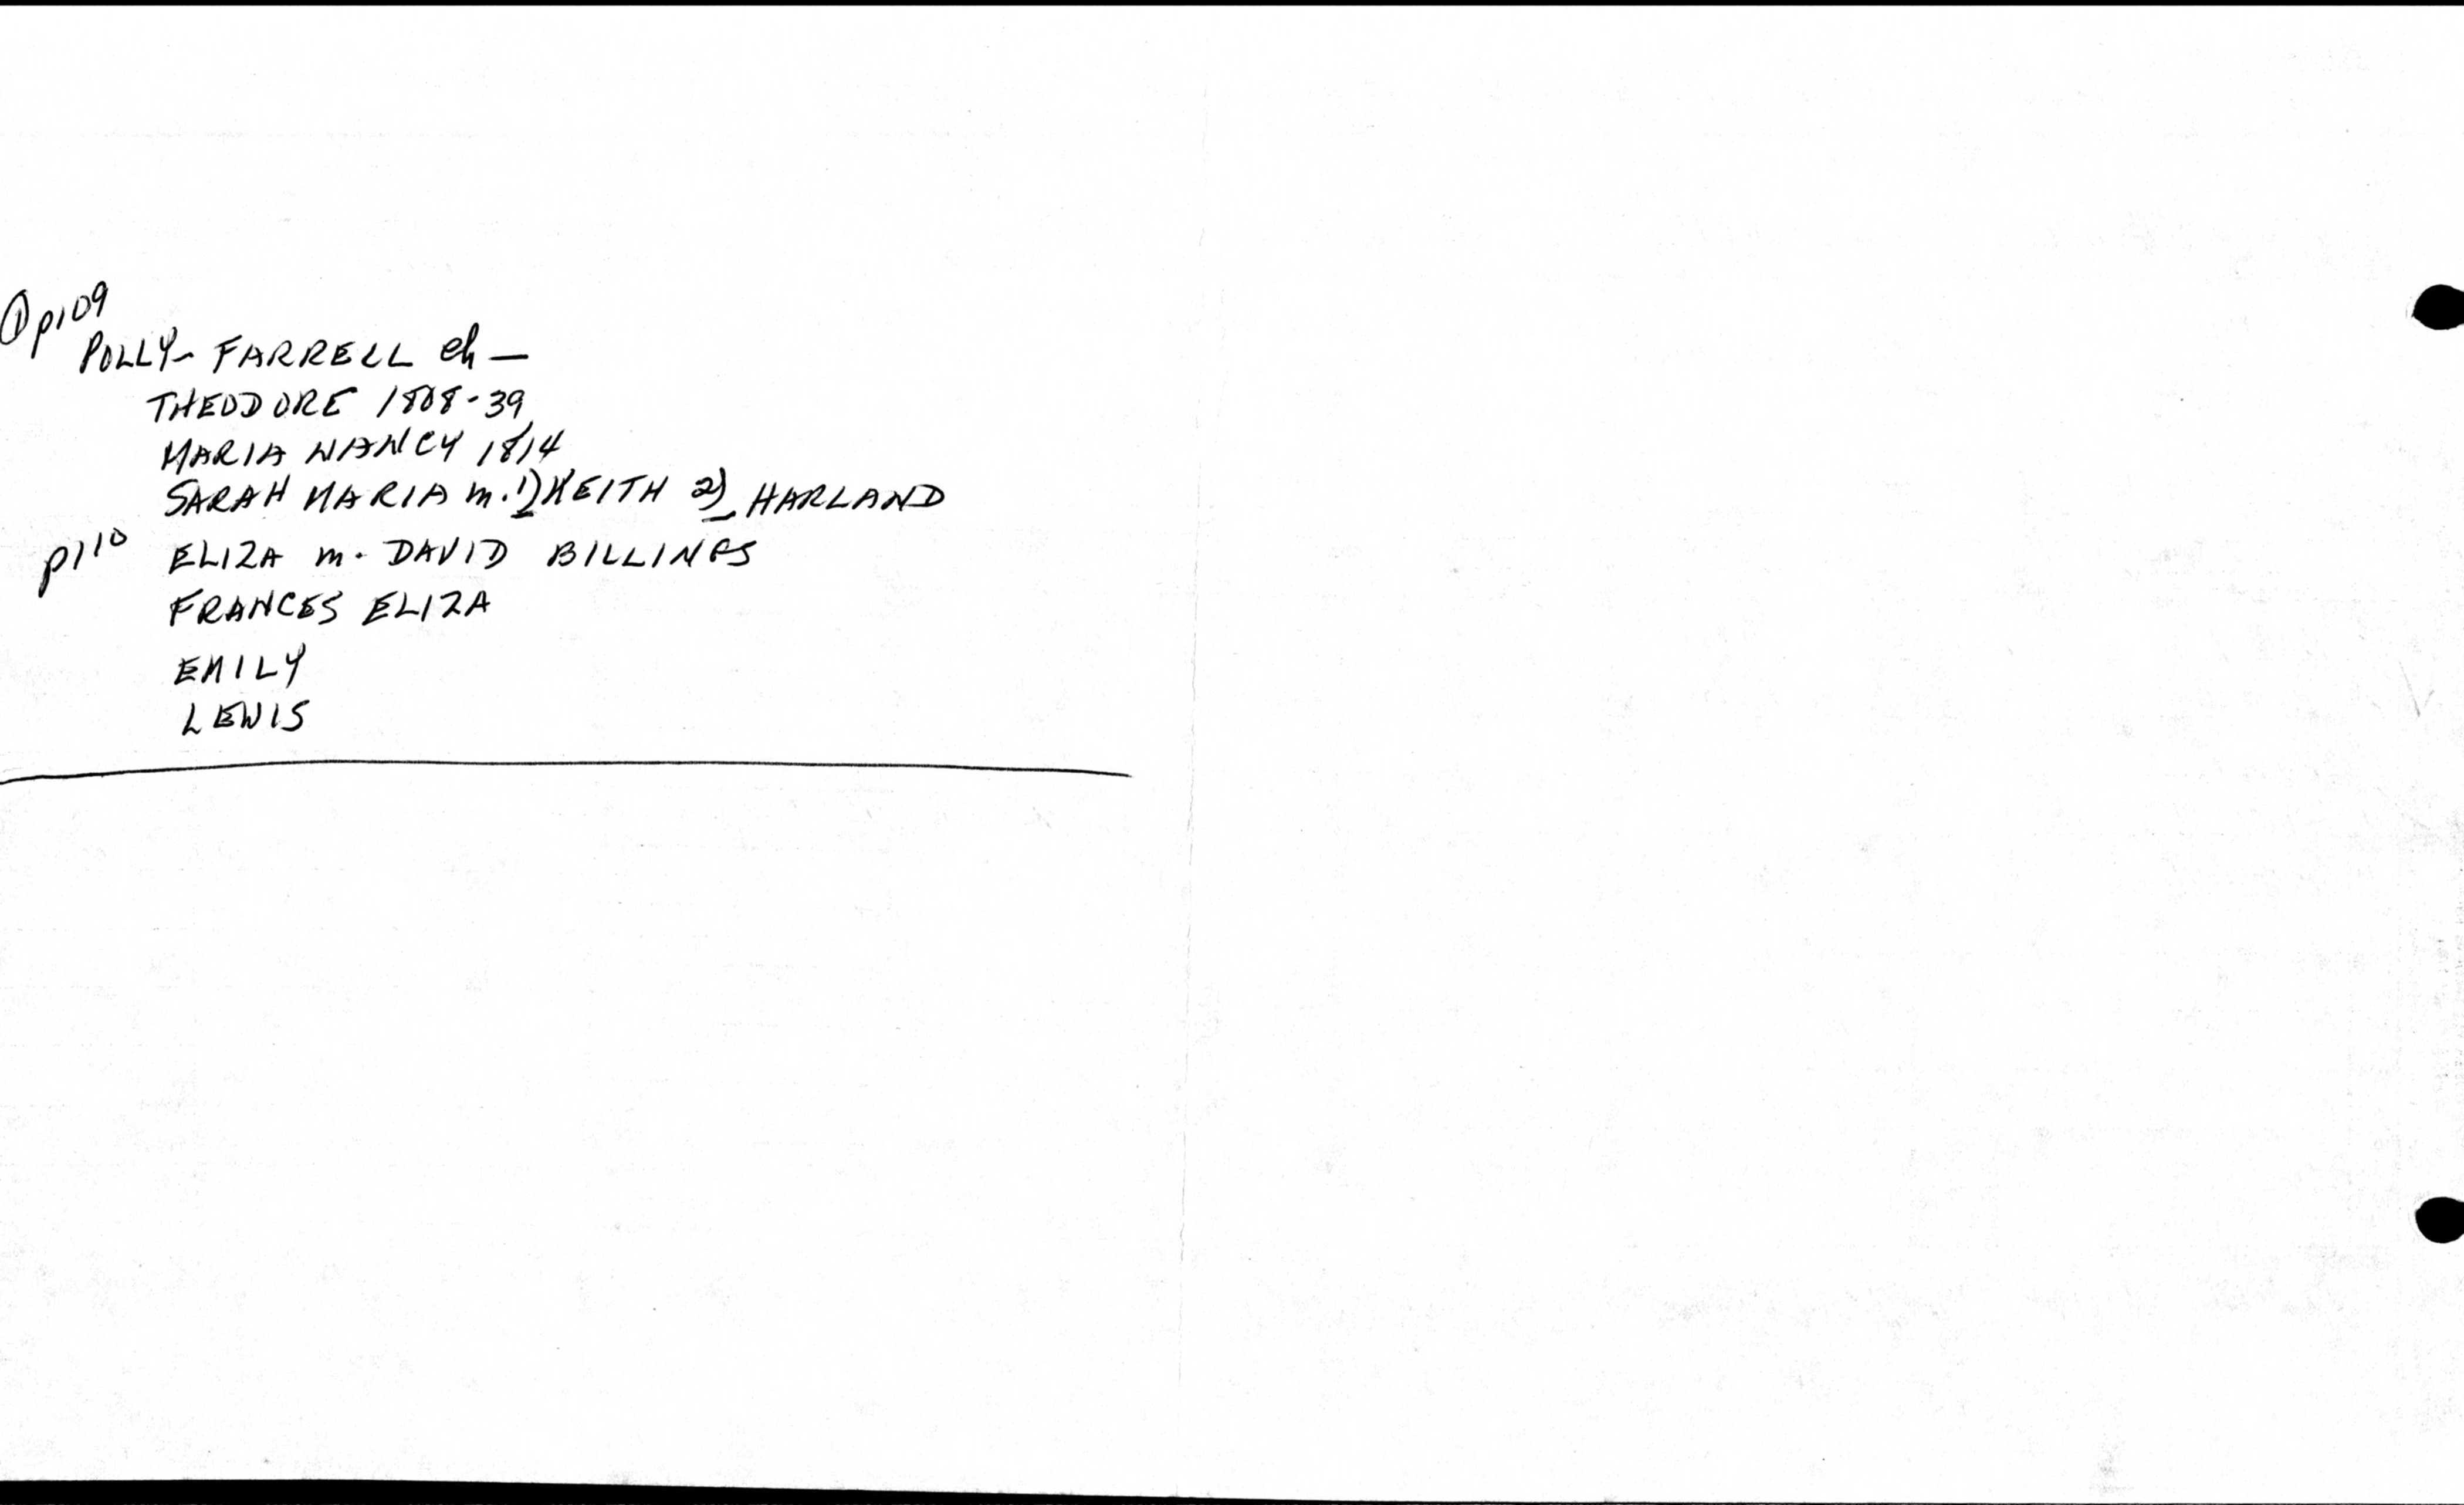 ① p109
POLLY - FARRELL ch —
THEODORE 1808-39
MARIA NANCY 1814
SARAH MARIA m. 1) KEITH 2) HARLAND
p110 ELIZA m. DAVID BILLINGS
FRANCES ELIZA
EMILY
LEWIS